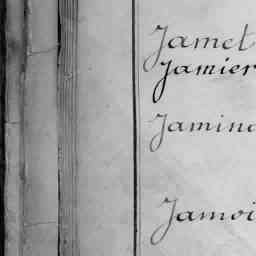 Jamet
Jamier
Jamino
Jamoi